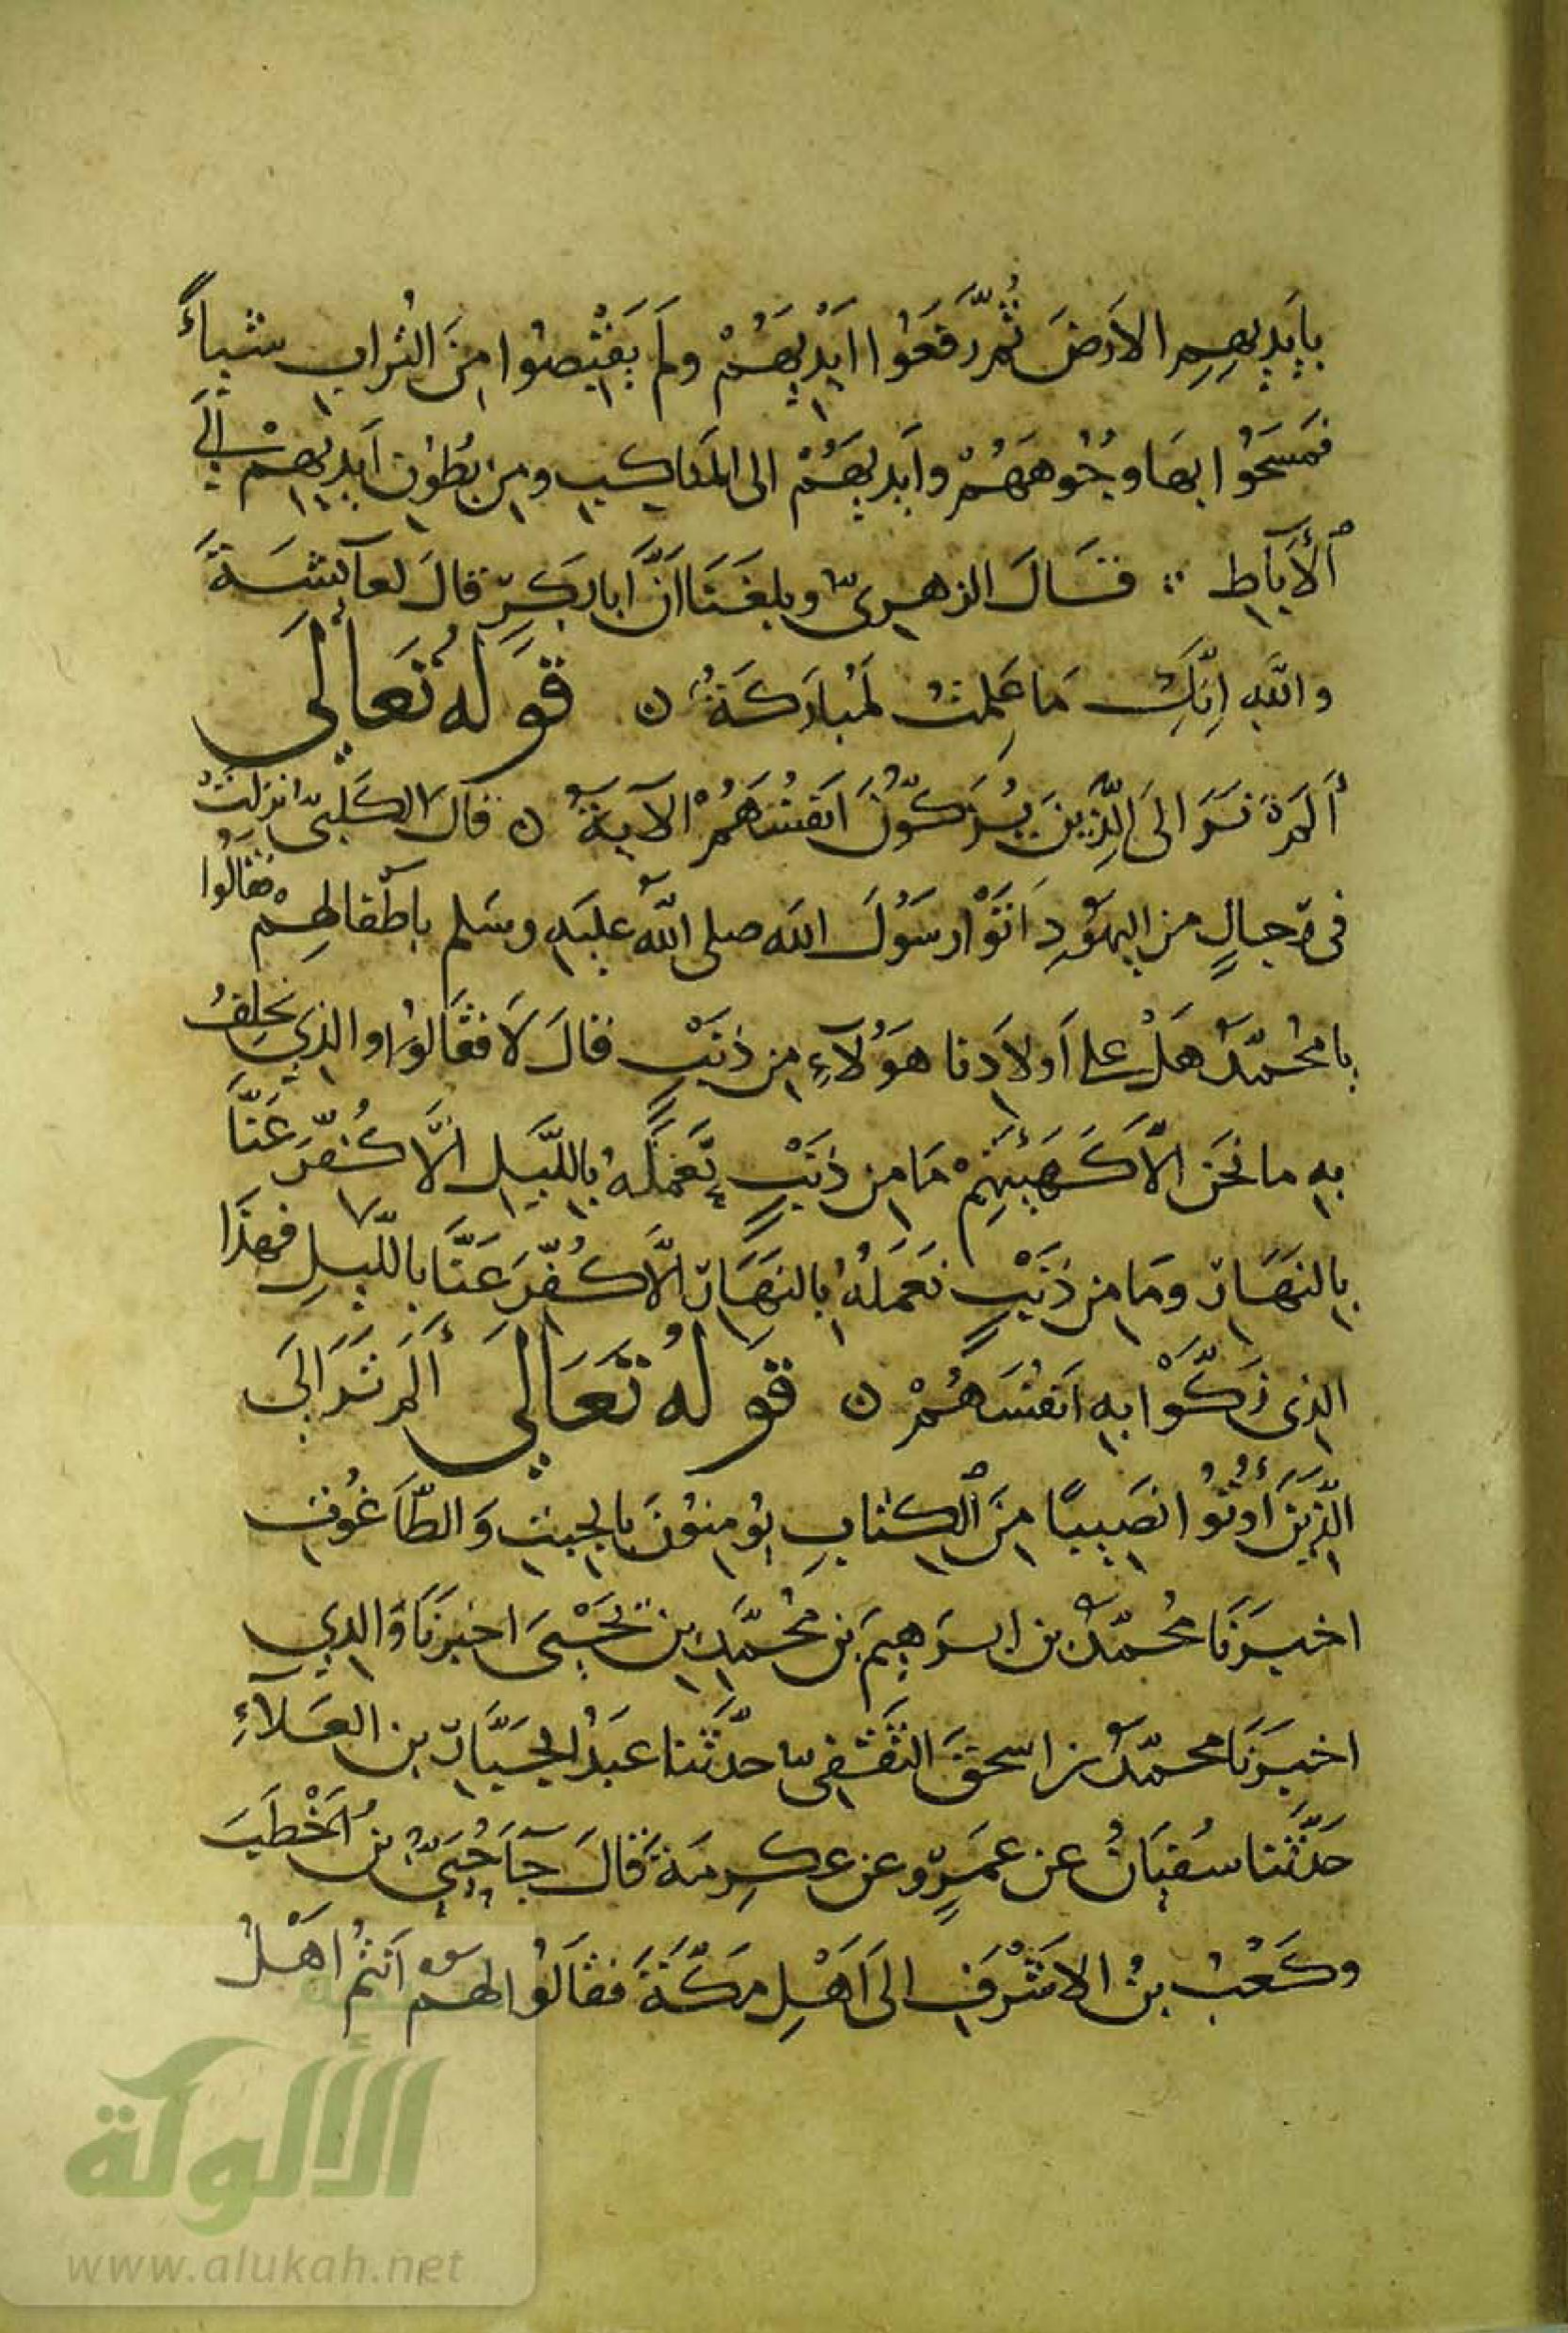 بِأَيْدِيهِمِ الأَرْضَ ثُمَّ رَفَعُوا أَيْدِيَهُمْ وَلَمْ يَقْبِضُوا مِنَ التُّرَابِ شَيْئاً
فَمَسَحُوا بِهَا وُجُوهَهُمْ وَأَيْدِيَهُمْ إلى المَنَاكِبِ وَمِنْ بُطُونِ أَيْدِيهِمْ إِلَى
ٱلْأَبَاطِ ؞ قَالَ الزهرِيُّ وبلغَنَا أَنَّ أبا بَكرٍ قالَ لعَائِشَةَ
واللَّهِ إِنَّكِ مَا عَلِمْتُ لَمُبَارَكَةٌ ن قَوْلُهُ تَعَالَى
أَلَمْ تَرَ إلَى الَّذِينَ يُزَكُّونَ أَنفُسَهُمْ الآيَةَ ن قال الكَلْبِيُّ نزلَتْ
فى رِجالٍ من اليهُودِ أَتَوْا رسُولَ الله صلى اللّه عليه وسَلم بأطْفالِهِمْ فقالُوا
يا محُمّدُ هَلْ على أَولَادِنا هَؤُلَآءِ مِن ذَنْبٍ قالَ لَا فَقَالُوا والذِي نَحْلِفُ
بِهِ ما نَحْنُ إلَّا كَهَيْئَتِهِمْ مَا مِن ذَنْبٍ نَعْمَلُهُ بِاللَّيْلِ إلَّا كُفِّرَ عَنَّا
بِالنَهَارِ ومَا مِن ذَنْبٍ نَعْمَلُهُ بِالنَهَارِ إلَّا كُفِّرَ عَنَّا بِاللَّيْلِ فهذَا
الذِى زَكَّوْا بِهِ أَنفُسَهُمْ ن قَوْلُهُ تَعَالَى أَلَمْ تَرَ إلَى
الَّذِينَ أُوتُوا نَصِيبًا مِّنَ ٱلْكِتَابِ يُؤْمِنُونَ بِالجِبْتِ وَالطَّاغُوتِ
اخبرَنَا مُحُمّدُ بن ابرَهِيمَ بنِ مُحُمَّدِ بنِ يَحْيَى اخبرَنَا وَالِدِي
اخبَرَنَا محمّدُ بن اسحقَ الثَّقَفِىُّ حدَّثَنا عَبدُ الجبَّارِ بن العَلَآءِ
حَدَّثَنا سُفيَانُ عن عَمرٍو عن عِكرِمَةَ قالَ جآءَ حُيَيُّ بنُ أَخْطَبَ
وكَعْبُ بنُ الأَشْرَفِ إلَى أَهْلِ مَكَّةَ فقَالُوا لهمْ أَنتُمْ أَهْلُ
الألوكة
www.alukah.net